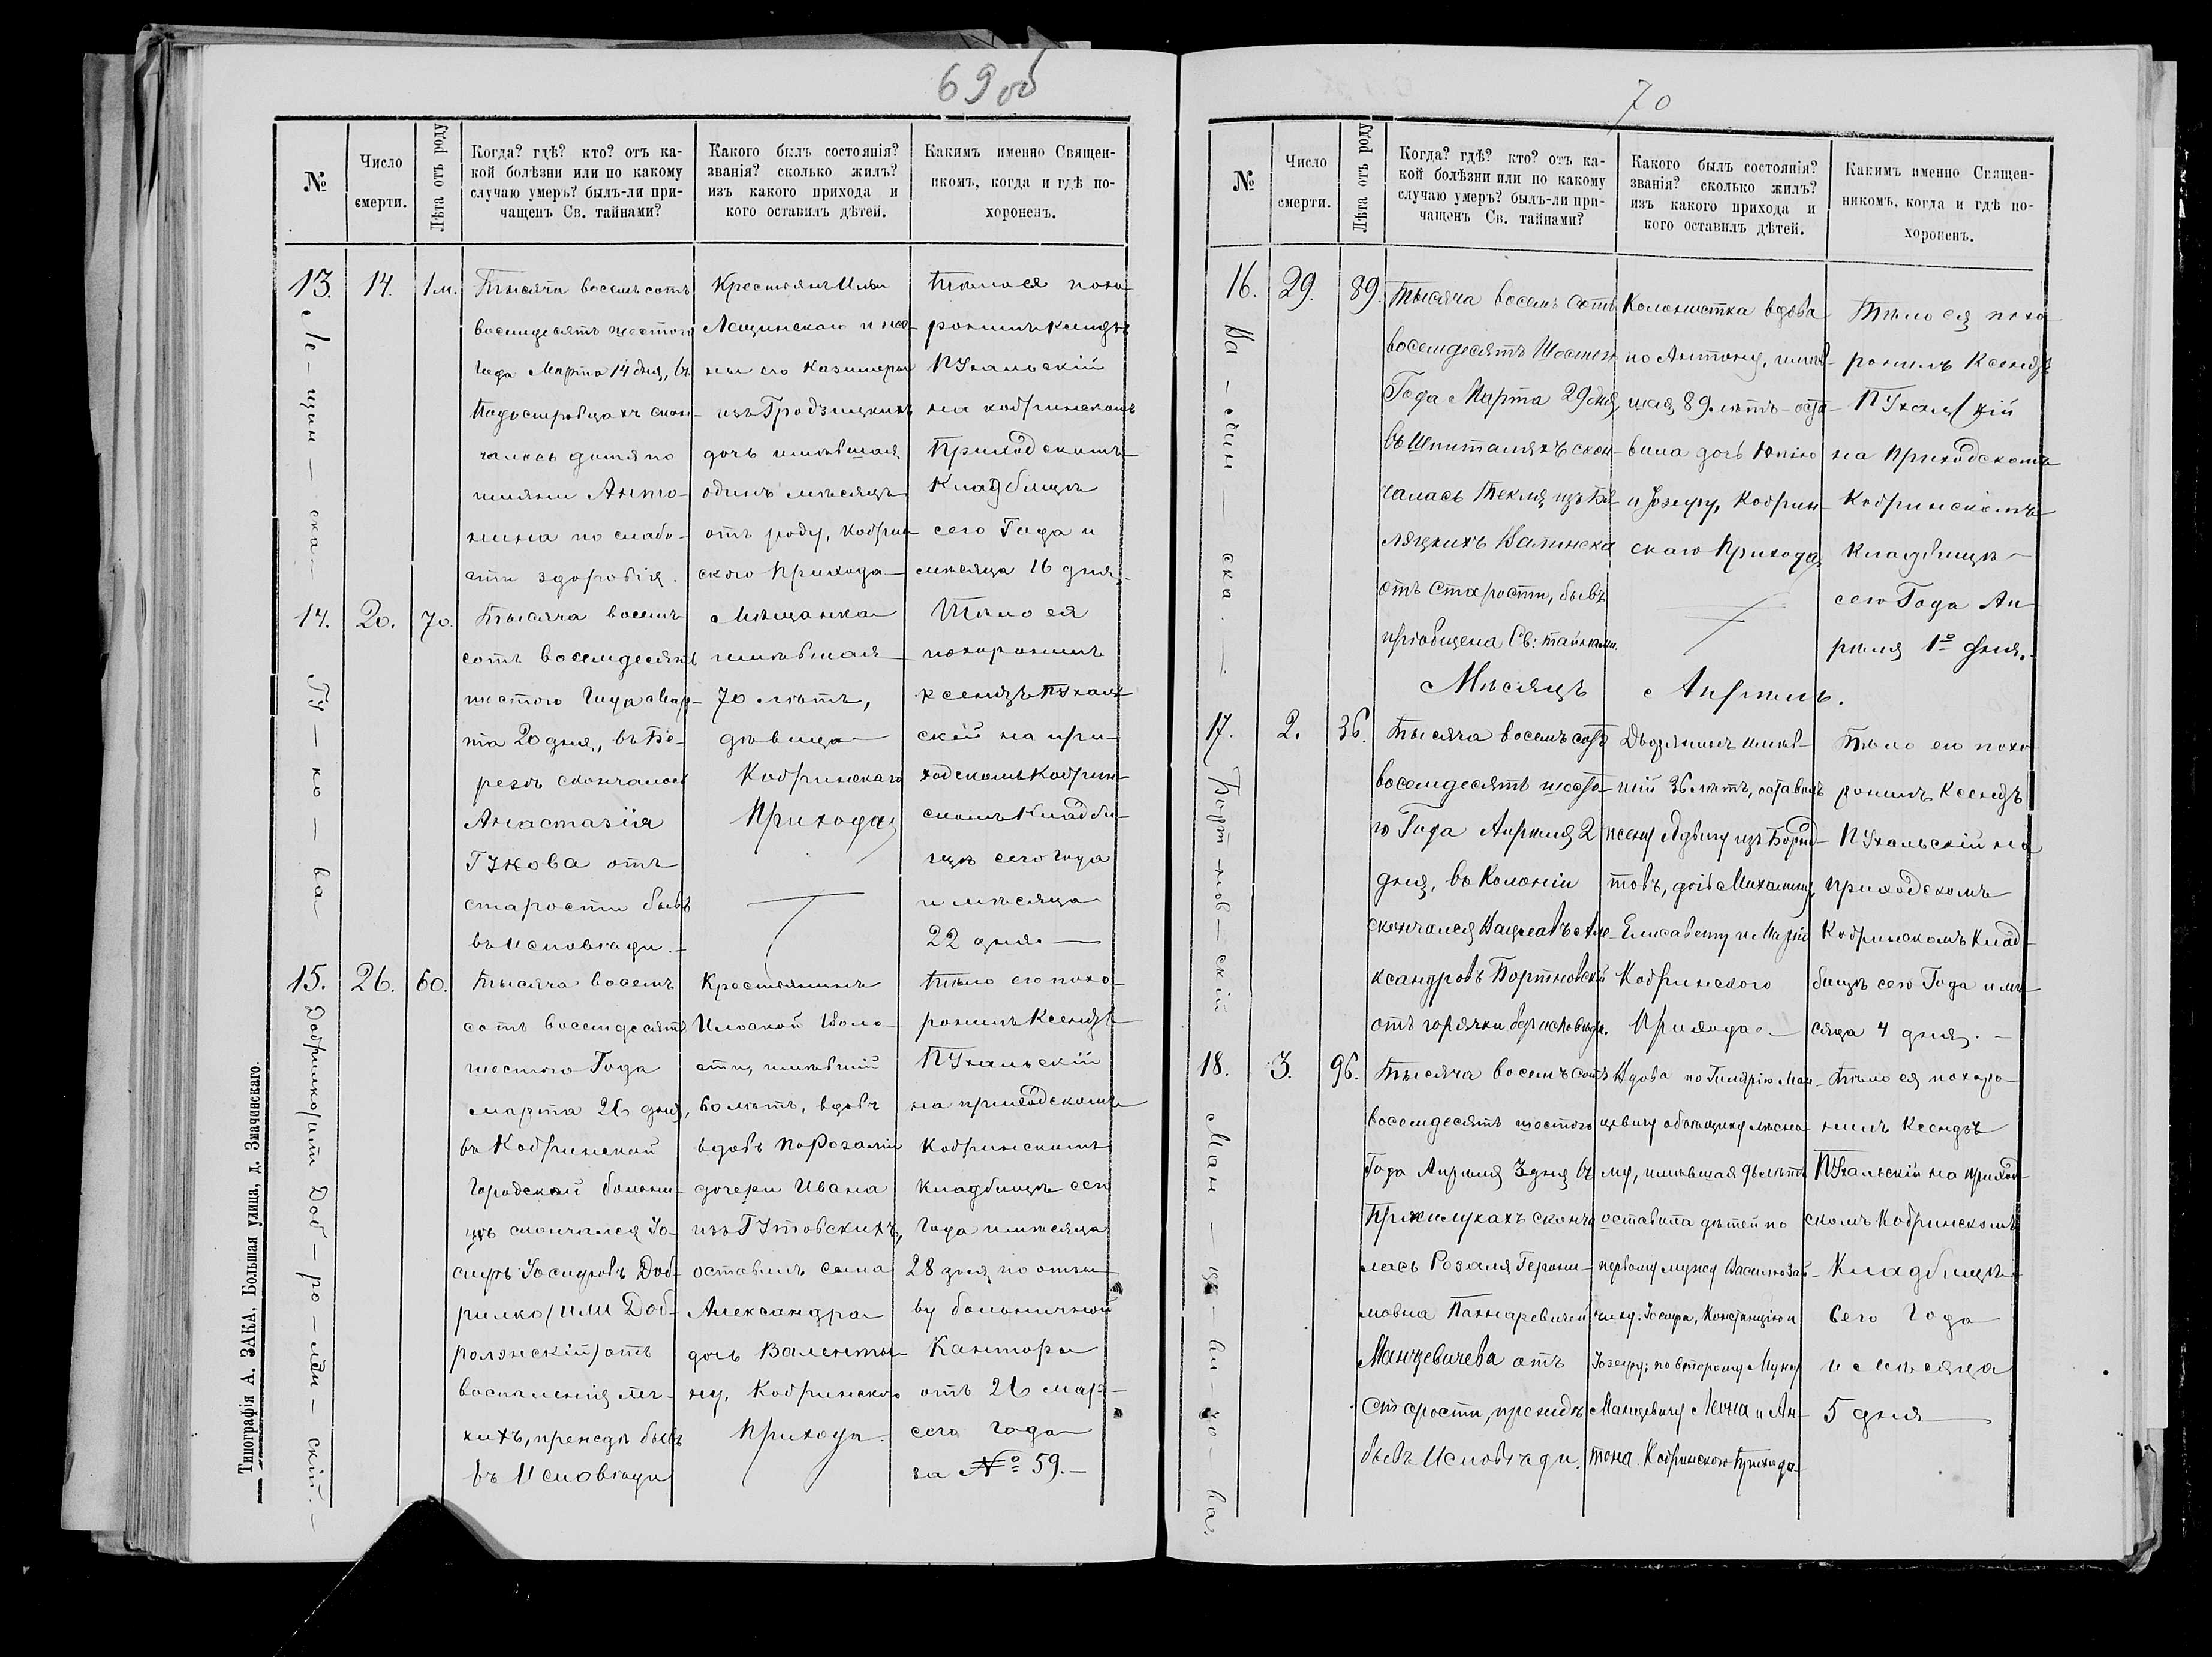 69об
№
Число
смерти.
Лѣта отъ роду
Когда? гдѣ? кто? отъ ка-
кой болѣзни или по какому
случаю умеръ? былъ-ли при-
чащенъ Св. тайнами?
Какого былъ состоянія?
званія? сколько жилъ?
изъ какого прихода и
кого оставилъ дѣтей.
Какимъ именно Священ-
никомъ, когда и гдѣ по-
хороненъ.
13.
Ле-щин-ска-
14.
1 м.
Тысяча восемьсотъ
восемдесятъ шестого
Года Марта 14 дня, въ
скон-
чалось дитя по
имяни Анто-
нина по слабо-
сти здоровія.
Крестьянъ Ильи
Лещинскаго и же-
ны его Казимеры
изъ Гродзицкихъ
дочь имѣвшая
одинъ мѣсяцъ
отъ роду, Кобрин
ского Прихода
Тѣло ея похо-
ронилъ Ксендзъ
Пухальскій
на кобринскомъ
Приходскомъ
Кладбищѣ
сего Года и
мѣсяца 16 дня.
14.
Гу-ко-ва
20.
70.
Тысяча восемь
сотъ восемдесятъ
шестого Года Мар-
та 20 дня, въ Бе-
резѣ скончалась
Анастазія
Гукова отъ
старости бывъ
въ исповѣди.
Мѣщанка
имѣвшая
70 лѣтъ,
дѣвица
Кобринскаго
Прихода
Тѣло ея
похоронилъ
ксендзъ Пухаль
скій на при-
ходскомъ Кобрин-
скомъ Кладби-
щѣ сего Года
и мѣсяца
22 дня.
15.
Добрилко/или Доб-ро-лэн-скій.-
26.
60.
Тысяча восемь
сотъ восемдесятъ
шестого Года
марта 26 дня,
въ Кобринской
Городской больни-
цѣ скончался Іо-
сифъ Іосифовъ Доб-
рилко/или Доб-
ролэнскій/ отъ
воспаленія лег-
кихъ, прежде бывъ
въ Исповѣди
Крестьянинъ
Илоской Воло-
сти, имѣвшій
60 лѣтъ, вдовъ
вдовъ по Розаліи
дочери Ивана
изъ Гутовскихъ,
оставилъ сына
Александра
дочь Валенты-
ну, Кобринского
Прихода.
Тѣло его похо-
ронилъ Ксендзъ
Пухальскій
на приходскомъ
Кобринскомъ
Кладбищѣ сего
Года и мѣсяца
28 дня по отзы-
ву больничной
Канторы
отъ 26 мар-
сего года
за № 59.-
Типографія А. ЗАКА, Большая улица, д. Значинскаго.
70
№
Число
смерти.
Лѣта отъ роду
Когда? гдѣ? кто? отъ ка-
кой болѣзни или по какому
случаю умеръ? былъ-ли при-
чащенъ Св. тайнами?
Какого былъ состоянія?
званія? сколько жилъ?
изъ какого прихода и
кого оставилъ дѣтей.
Какимъ именно Священ-
никомъ, когда и гдѣ по-
хороненъ.
16.
29.
89.
Тысяча восемь сотъ
восемдесятъ Шестого
Года Марта 29 дня,
въ Шпиталяхъ скон-
чалась Текля изъ
ляцкихъ
отъ старости, бывъ
пріобщена Св: тайнами.
Колонистка вдова
по Антону, имѣв-
шая 89. лѣтъ-оста-
вила дочь
и Іозефу, Кобрин-
скаго Прихода
Тѣло ея похо
ронилъ Ксендзъ
Пухальскій
на Приходскомъ
Кобринскомъ
Кладбищѣ
сего Года Ап-
рѣля 1º дня.
Мѣсяцъ Апрѣль.
17.
Борт-нов-скій
2.
36.
Тысяча восемьсотъ
восемдесятъ шесто-
го Года Апрѣля 2
дня, въ Колоніи
скончался Вацлавъ Але-
ксандровъ Бортновскій
отъ горячки безъ исповѣди.
Дворянинъ имѣв-
шій 36. лѣтъ, оставилъ
жену Ядвигу изъ
товъ, дочь Михалину,
Елисавету и Марію
Кобринского
Прихода
Тѣло его похо
ронилъ Ксендзъ
Пухальскій на
приходскомъ
Кобринскомъ Клад-
бищѣ сего Года и мѣ-
сяца 4 дня.-
18.
Ман-це-ви-чо-ва.
3.
96.
Тысяча восемь сотъ
восемдесятъ шестого
Года Апрѣля 3 дня въ
Прилукахъ сконча
лась Розаля Герони-
мовна
Манцевичева отъ
старости, прежде
бывъ Исповѣди.
Вдова по Гилярію Ман-
цевичу лѣсно-
му, имѣвшая лѣтъ
оставила дѣтей по
первому мужу
Іосифа, Констанцію и
Іозефу; по второму Мужу
Манцевичу Леона и Ан-
тона. Кобринского Прихода
Тѣло ея похоро-
нилъ Ксендзъ
Пухальскій на приход-
скомъ Кобринскомъ
Кладбищѣ
Сего Года
и Мѣсяца
5 дня